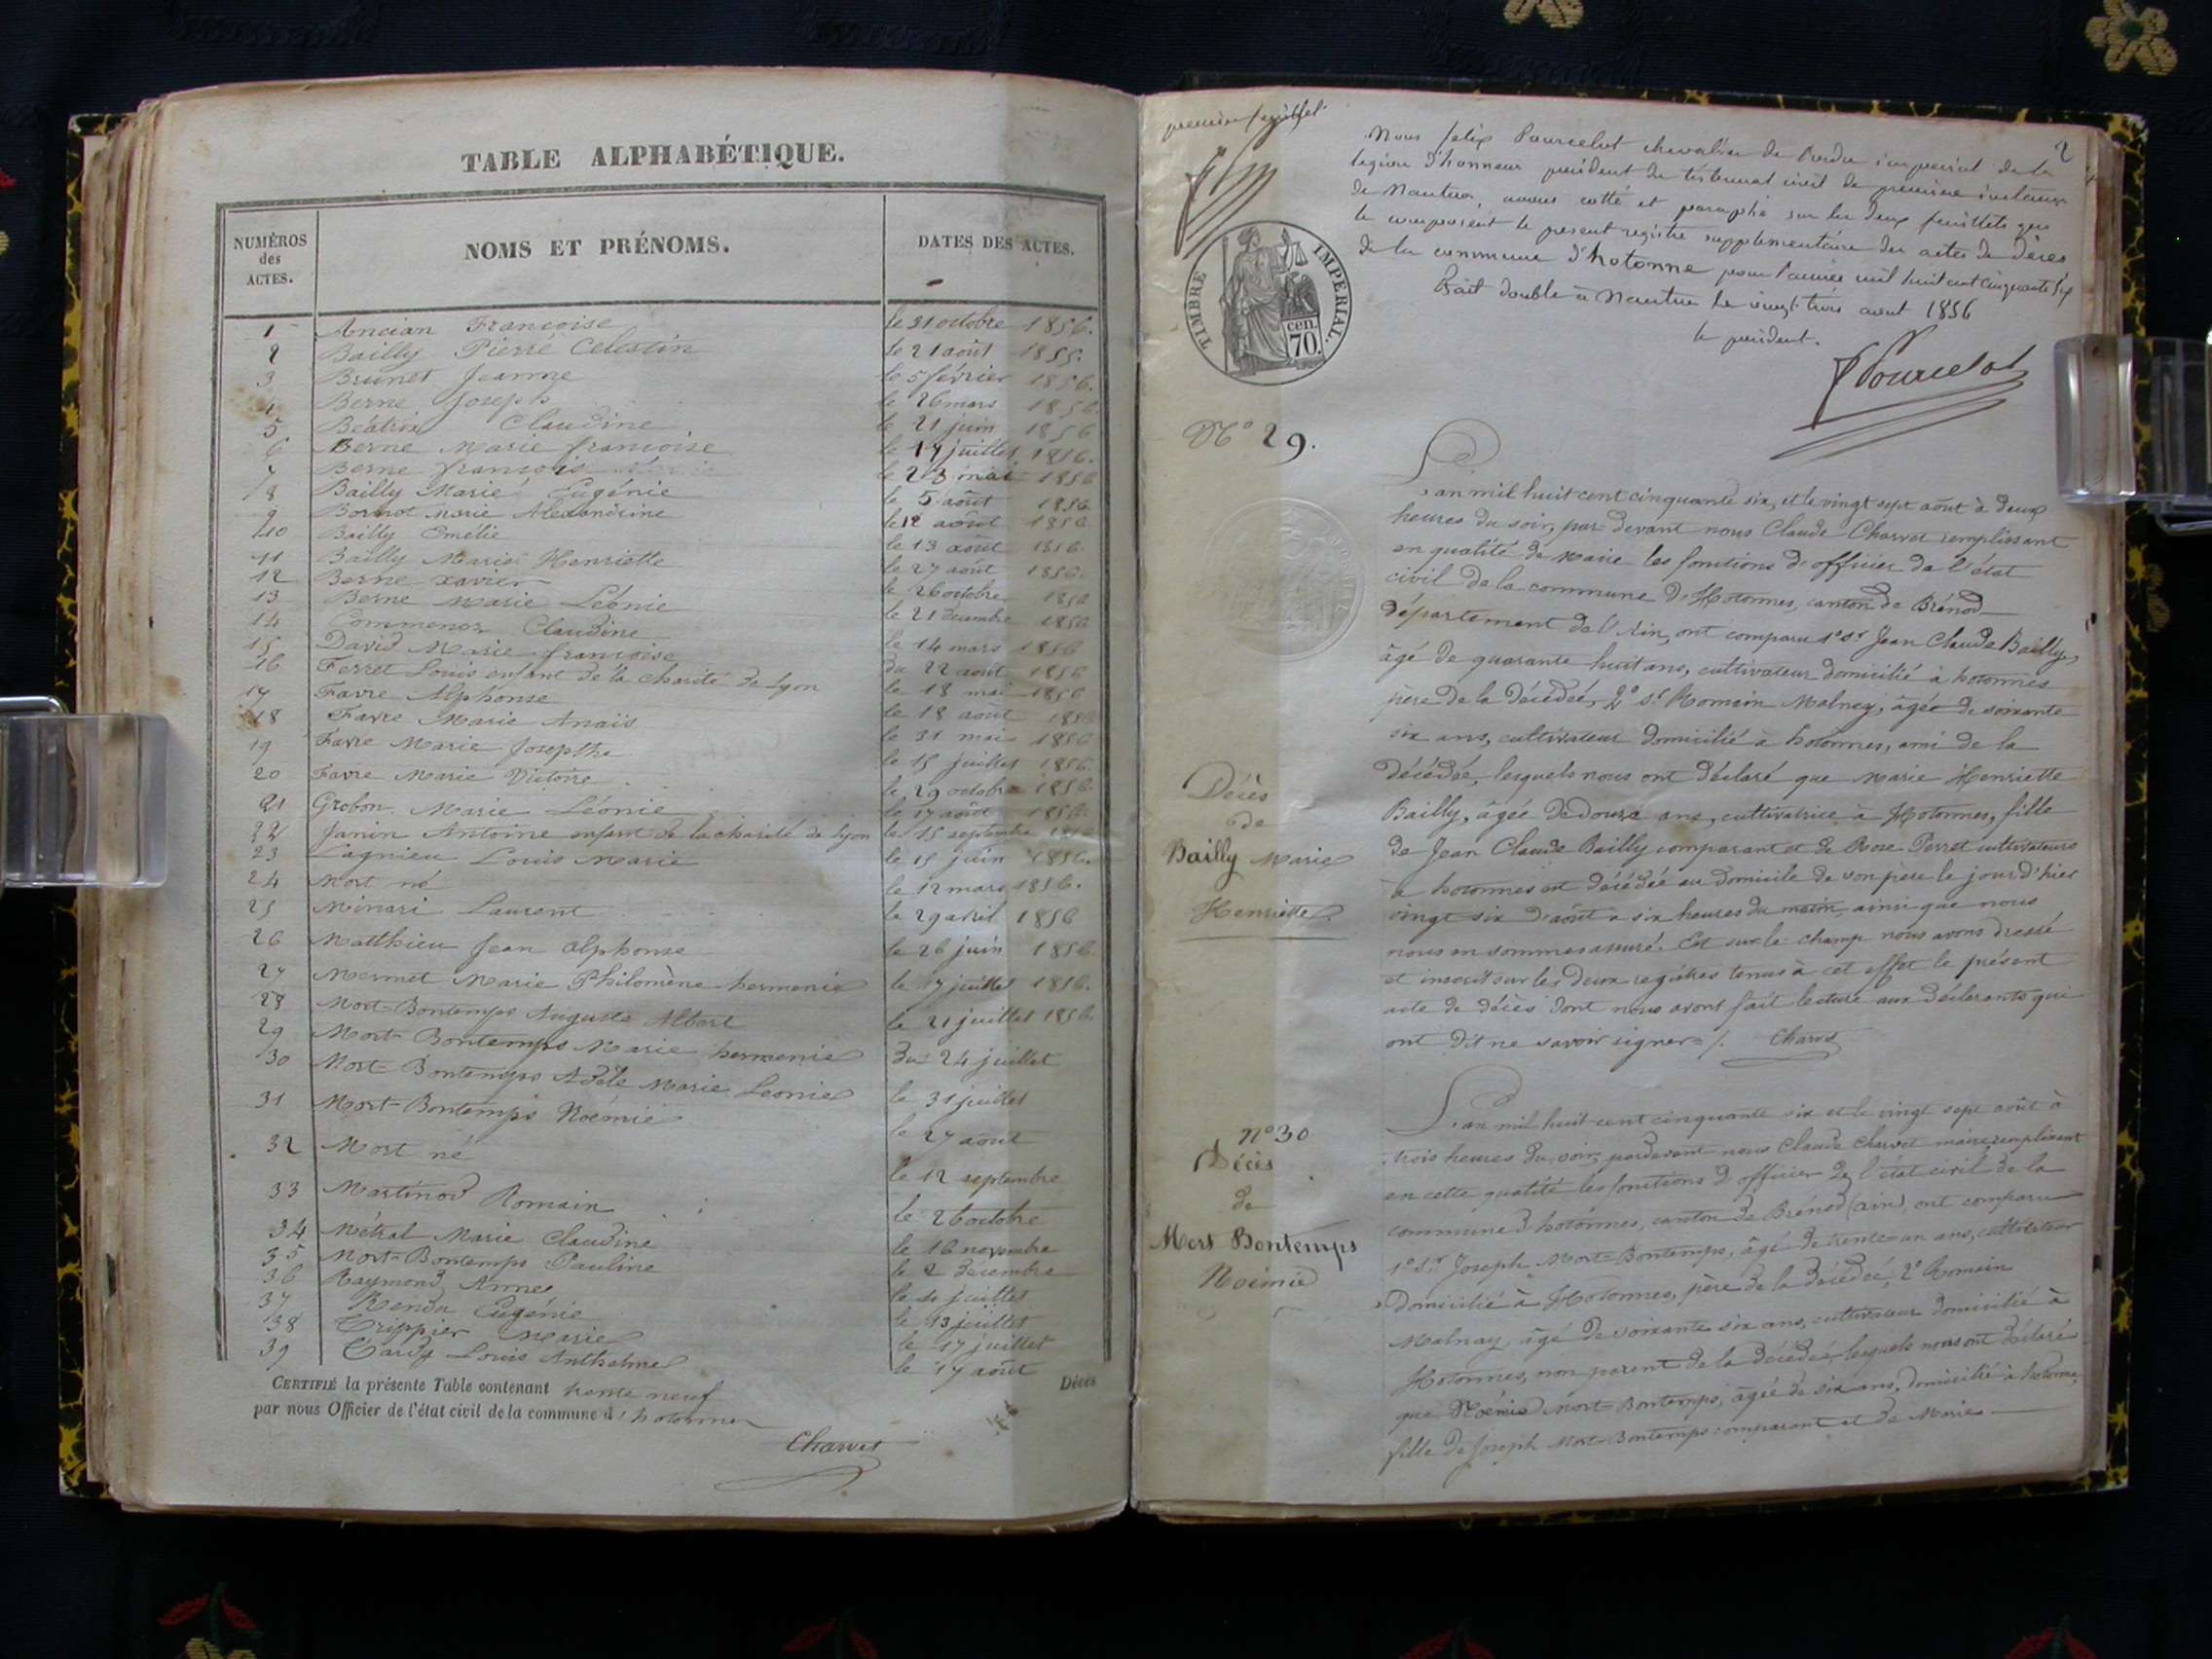 TABLE ALPHABÉTIQUE.
NUMÉROS des ACTES.
NOMS ET PRÉNOMS.
DATES DES ACTES.
1 Ancian Françoise le 31 octobre 1856.
2 Bailly Pierre Celestin le 21 août 1855.
3 Brunet Jeanne le 5 février 1856.
4 Berne Joseph le 26 mars 1856.
5 Béatrix Claudine le 21 juin 1856
6 Berne Marie françoise le 17 juillet 1856.
7 Berne françois le 23 mai 1856
8 Bailly Marie Eugénie le 5 août 1856
9 Marie Alexandrine le 12 août 1856
10 Bailly Emélie le 13 août 1856.
11 Bailly Marie Henriette le 27 août 1856.
12 Berne xavier le 26 octobre 1856
13 Berne Marie Léonie le 21 décembre 1856
14 Claudine le 14 mars 1856
15 David Marie françoise du 22 août 1856
16 Ferret Louis enfant de la charité de Lyon le 18 mai 1856
17 Favre Alphonse le 18 août 1856
18 Favre Marie Anaïs le 31 mai 1856
19 Favre Marie Josepthe le 15 juillet 1856.
20 Favre Marie Victoire le 29 octobre 1856.
21 Grobon Marie Léonie le 17 août 1856.
22 Janin Antoine enfant de la charité de lyon le 15 septembre 1856
23 Lagnieu Louis Marie le 15 juin 1856.
24 Mort né le 12 mars 1856.
25 Minari Laurent le 29 avril 1856
26 Matthieu Jean alphonse le 26 juin 1856.
27 Mermet Marie Philomène hermenie le 17 juillet 1856.
28 Mort-Bontemps Auguste Albert le 21 juillet 1856.
29 Mort-Bontemps Marie hermenie du 24 juillet
30 Mort-Bontemps Adèle Marie Leonie le 31 juillet
31 Mort-Bontemps Noémie le 27 août
32 Mort né le 12 septembre
33 Martinod Romain le 26 octobre
34 Métral Marie Claudine le 16 novembre
35 Mort-Bontemps Pauline le 2 décembre
36 Raymond Anne le juillet
37 Rendu Eugénie le 13 juillet
38 Trippier Marie le 17 juillet
39 Tardy Louis Anthelme le 17 août
CERTIFIÉ la présente Table contenant trente neuf Décès
par nous Officier de l'état civil de la commune d'hotonnes
Charvet
premier feuillet
2
Nous felix Pourcelot chevalier de l'ordre impérial de la
légion d'honneur président du tribunal civil de première instance
de Nantua, avons cotté et paraphé sur les deux feuillets que
le composent le present registre supplémentaire des actes de décès
de la commune d'hotonne pour l'année mil huit cent cinquante six
Fait double à Nantua le vingt trois aout 1856
le président.
F Pourcelot
TIMBRE IMPÉRIAL.
70. cen.
N° 29.
L'an mil huit cent cinquante six, et le vingt sept août à deux
heures du soir, par devant nous Claude Charvet remplissant
en qualité de Maire les fonctions d'officier de l'état
civil de la commune d'Hotonnes, canton de Brénod
département de l'Ain, ont comparu 1° Sr Jean Claude Bailly,
âgé de quarante huit ans, cultivateur domicilié à hotonnes
père de la décédée, 2° Sr Romain Malnay, âgée de soixante
six ans, cultivateur domicilié à hotonnes, ami de la
décédée, lesquels nous ont déclaré que Marie Henriette
Bailly, âgée de douze ans, cultivatrice à Hotonnes, fille
de Jean Claude Bailly comparant et de Rose Perret cultivateurs
à hotonnes est décédée au domicile de son père le jour d'hier
vingt six d'août à six heures du matin, ainsi que nous
nous en sommes assuré. Et sur le champ nous avons dressé
et inscrit sur les deux registres tenus à cet effet le présent
acte de décès dont nous avons fait lecture aux déclarants qui
ont dit ne savoir signer /. Charvet
Décès
de
Bailly Marie
Henriette
N° 30
Décès
de
Mort Bontemps
Noémie
L'an mil huit cent cinquante six et le vingt sept août à
trois heures du soir, pardevant nous Claude Charvet maire, remplissant
en cette qualité les fonctions d'officier de l'état civil de la
commune d'hotonnes, canton de Brénod (ain), ont comparu
1° Sr Joseph Mort-Bontemps, âgé de trente un ans, cultivateur
domicilié à Hotonnes, père de la décédée, 2° Romain
Malnay âgé de soixante six ans, cultivateur domicilié à
Hotonnes, non parent de la décédée, lesquels nous ont déclaré
que Noémie Mort-Bontemps, âgée de six ans, domicilié à hotonne,
fille de Joseph Mort-Bontemps comparant et de Marie